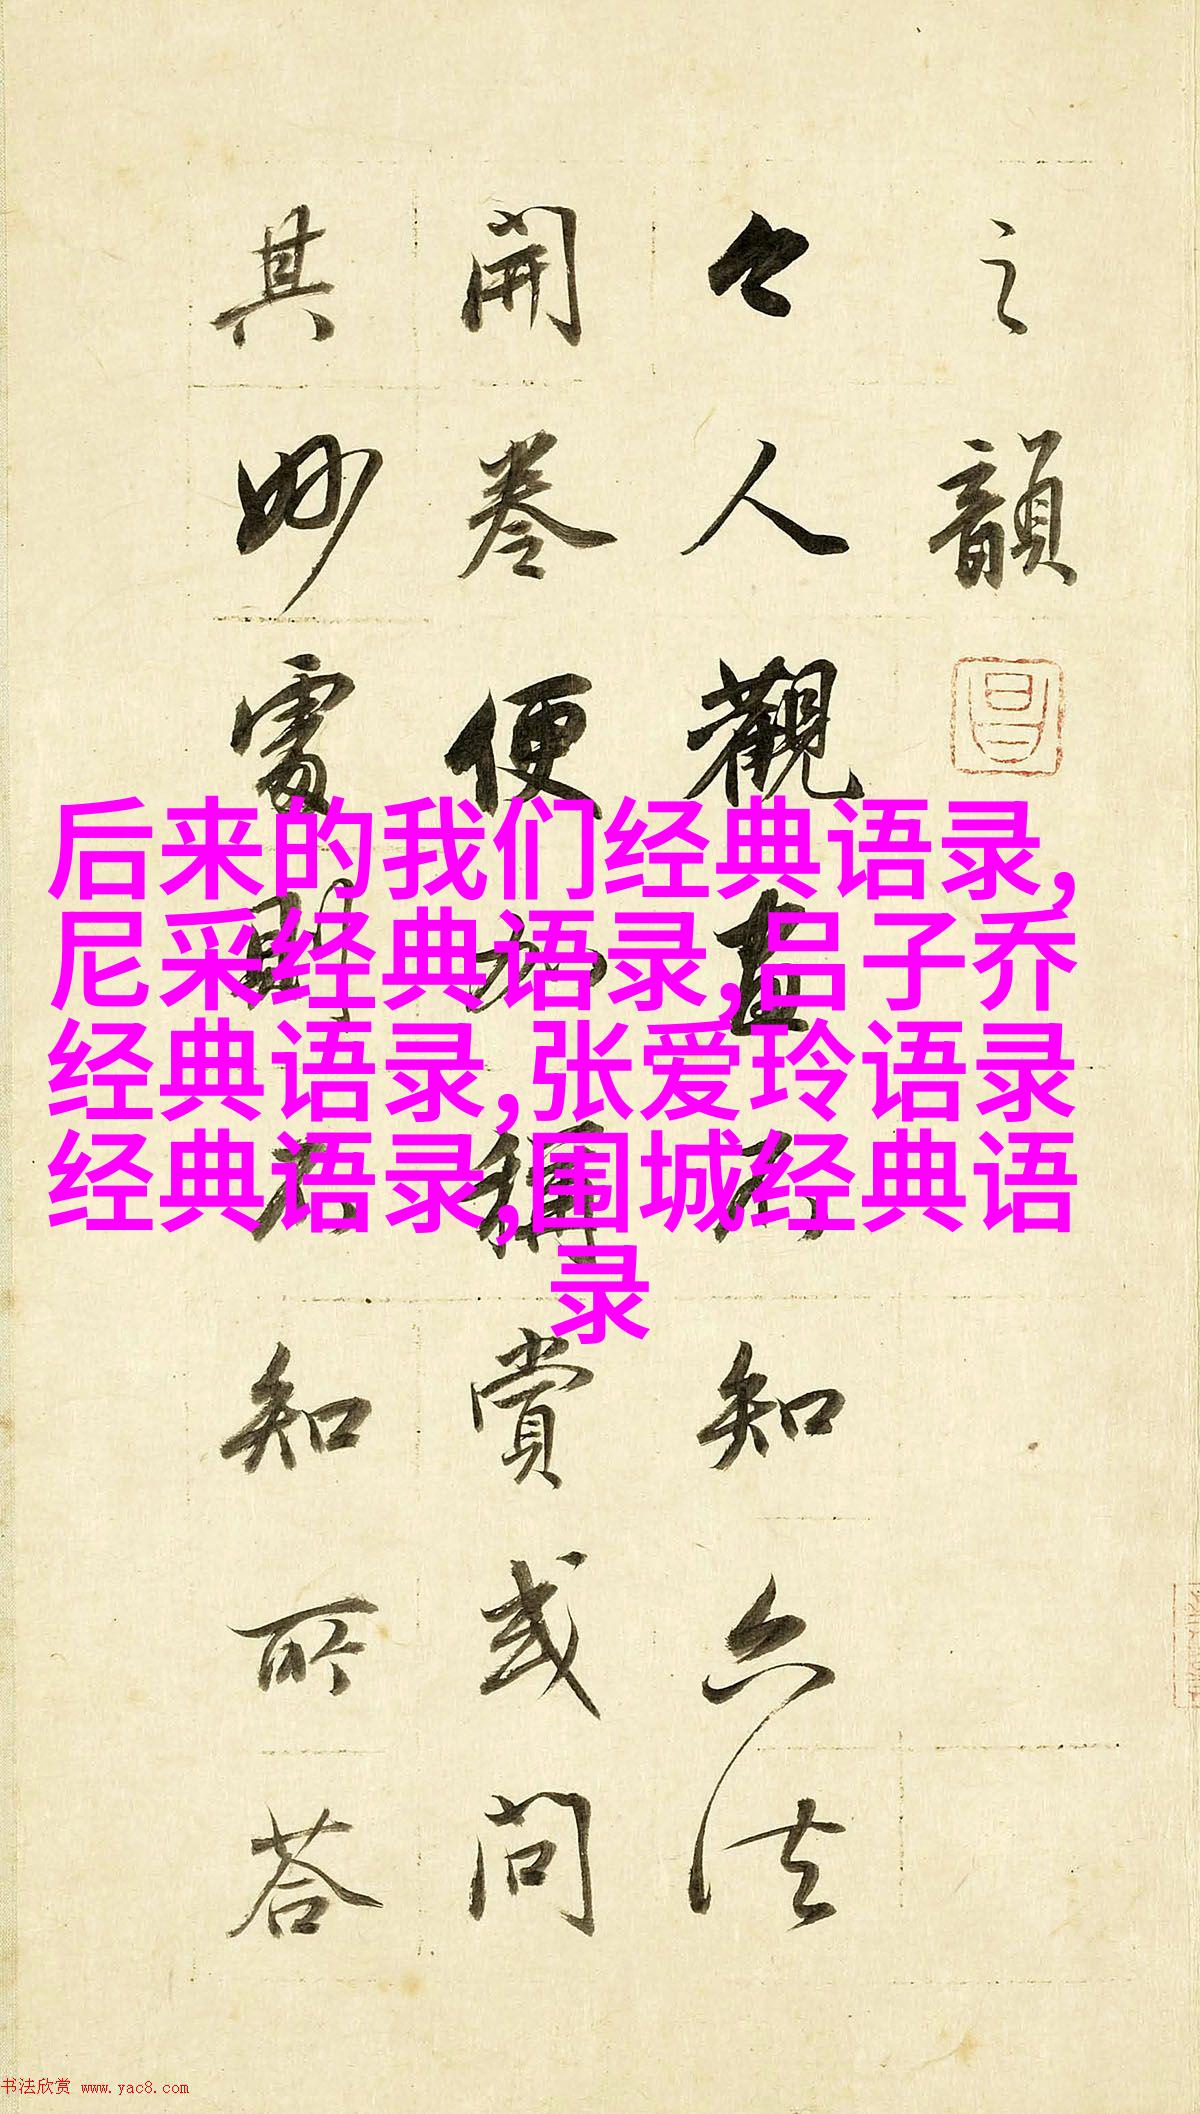 之韻
今人觀畫不知六法
開卷便加稱賞或問
其妙處則不知所荅
后来的我们经典语录,
尼采经典语录,吕子乔
经典语录,张爱玲语录
经典语录,围城经典语
录
书法欣赏 www.yac8.com